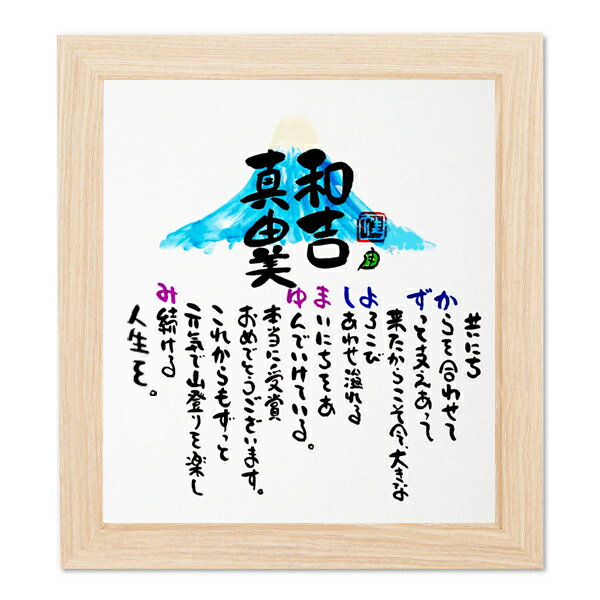 和吉
真由美
共にち
からを合わせて
ずっと支えあって
来たからこそ今、大きな
よろこび
しあわせ溢れる
まいにちをあ
ゆんでいけている。
本当に受賞
おめでとうございます。
これからもずっと
元気で山登りを楽し
み続ける
人生を。